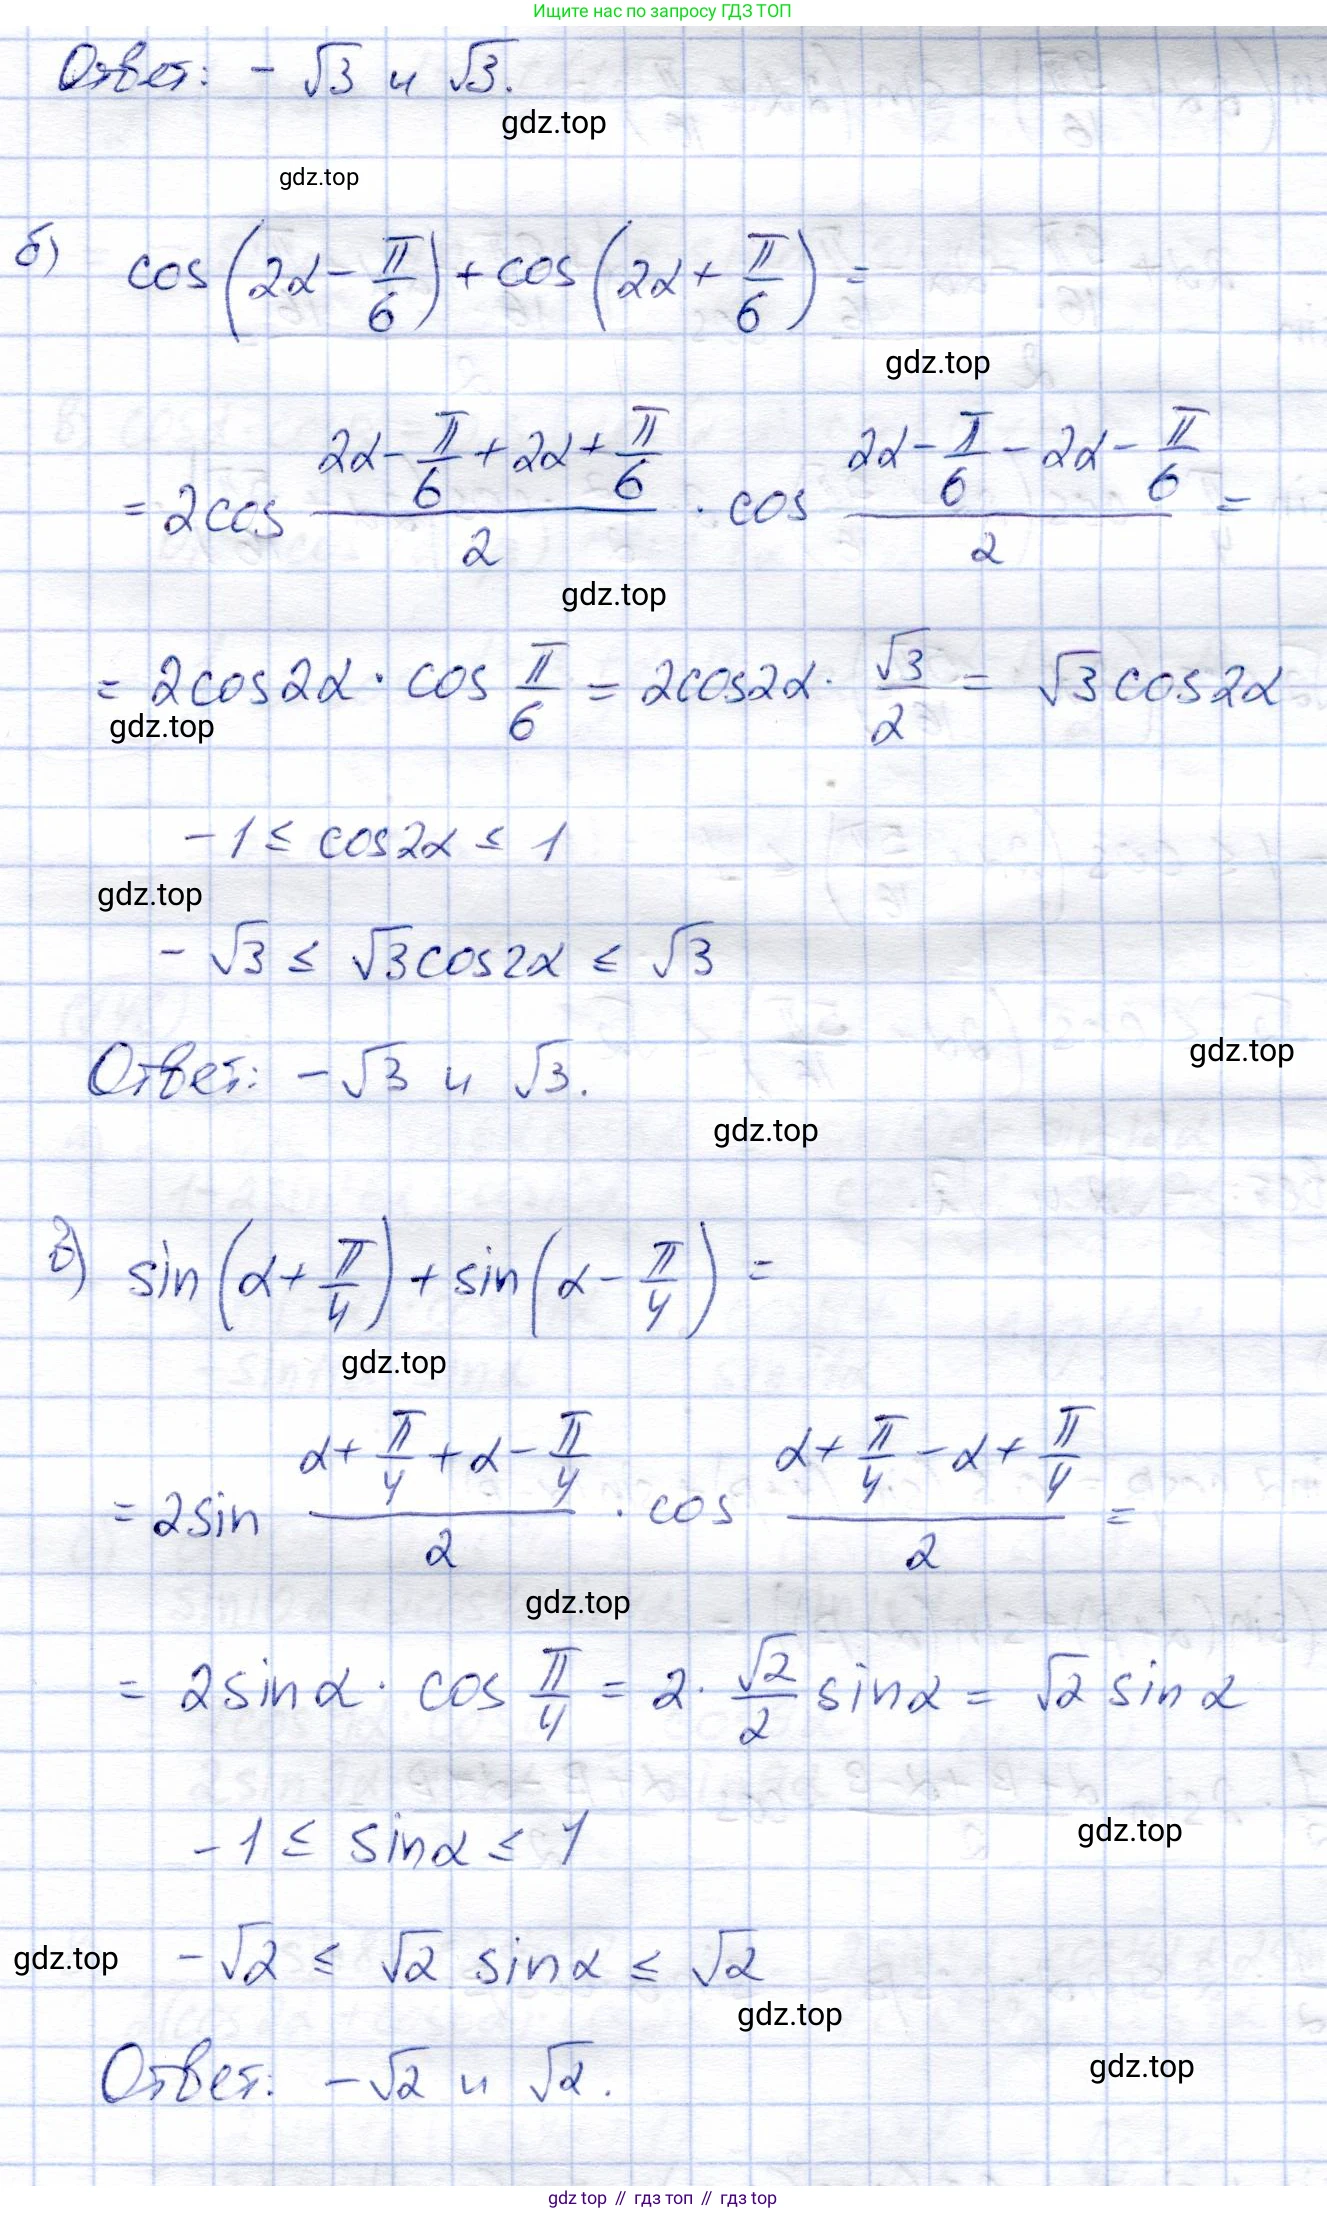 Ищите нас по запросу ГДЗ ТОП
Ответ: - √3 и √3.
gdz.top
gdz.top
б) cos(2α - π/6) + cos(2α + π/6) =
gdz.top
= 2cos (2α - π/6 + 2α + π/6)/2 · cos (2α - π/6 - 2α - π/6)/2 =
gdz.top
= 2cos2α · cos π/6 = 2cos2α · √3/2 = √3 cos2α
gdz.top
-1 ≤ cos2α ≤ 1
gdz.top
-√3 ≤ √3cos2α ≤ √3
gdz.top
Ответ: -√3 и √3.
gdz.top
в) sin(α + π/4) + sin(α - π/4) =
gdz.top
= 2sin (α + π/4 + α - π/4)/2 · cos (α + π/4 - α + π/4)/2 =
gdz.top
= 2sinα · cos π/4 = 2 · √2/2 sinα = √2 sinα
gdz.top
-1 ≤ sinα ≤ 1
gdz.top
-√2 ≤ √2 sinα ≤ √2
gdz.top
gdz.top
Ответ: -√2 и √2.
gdz top // гдз топ // гдз top